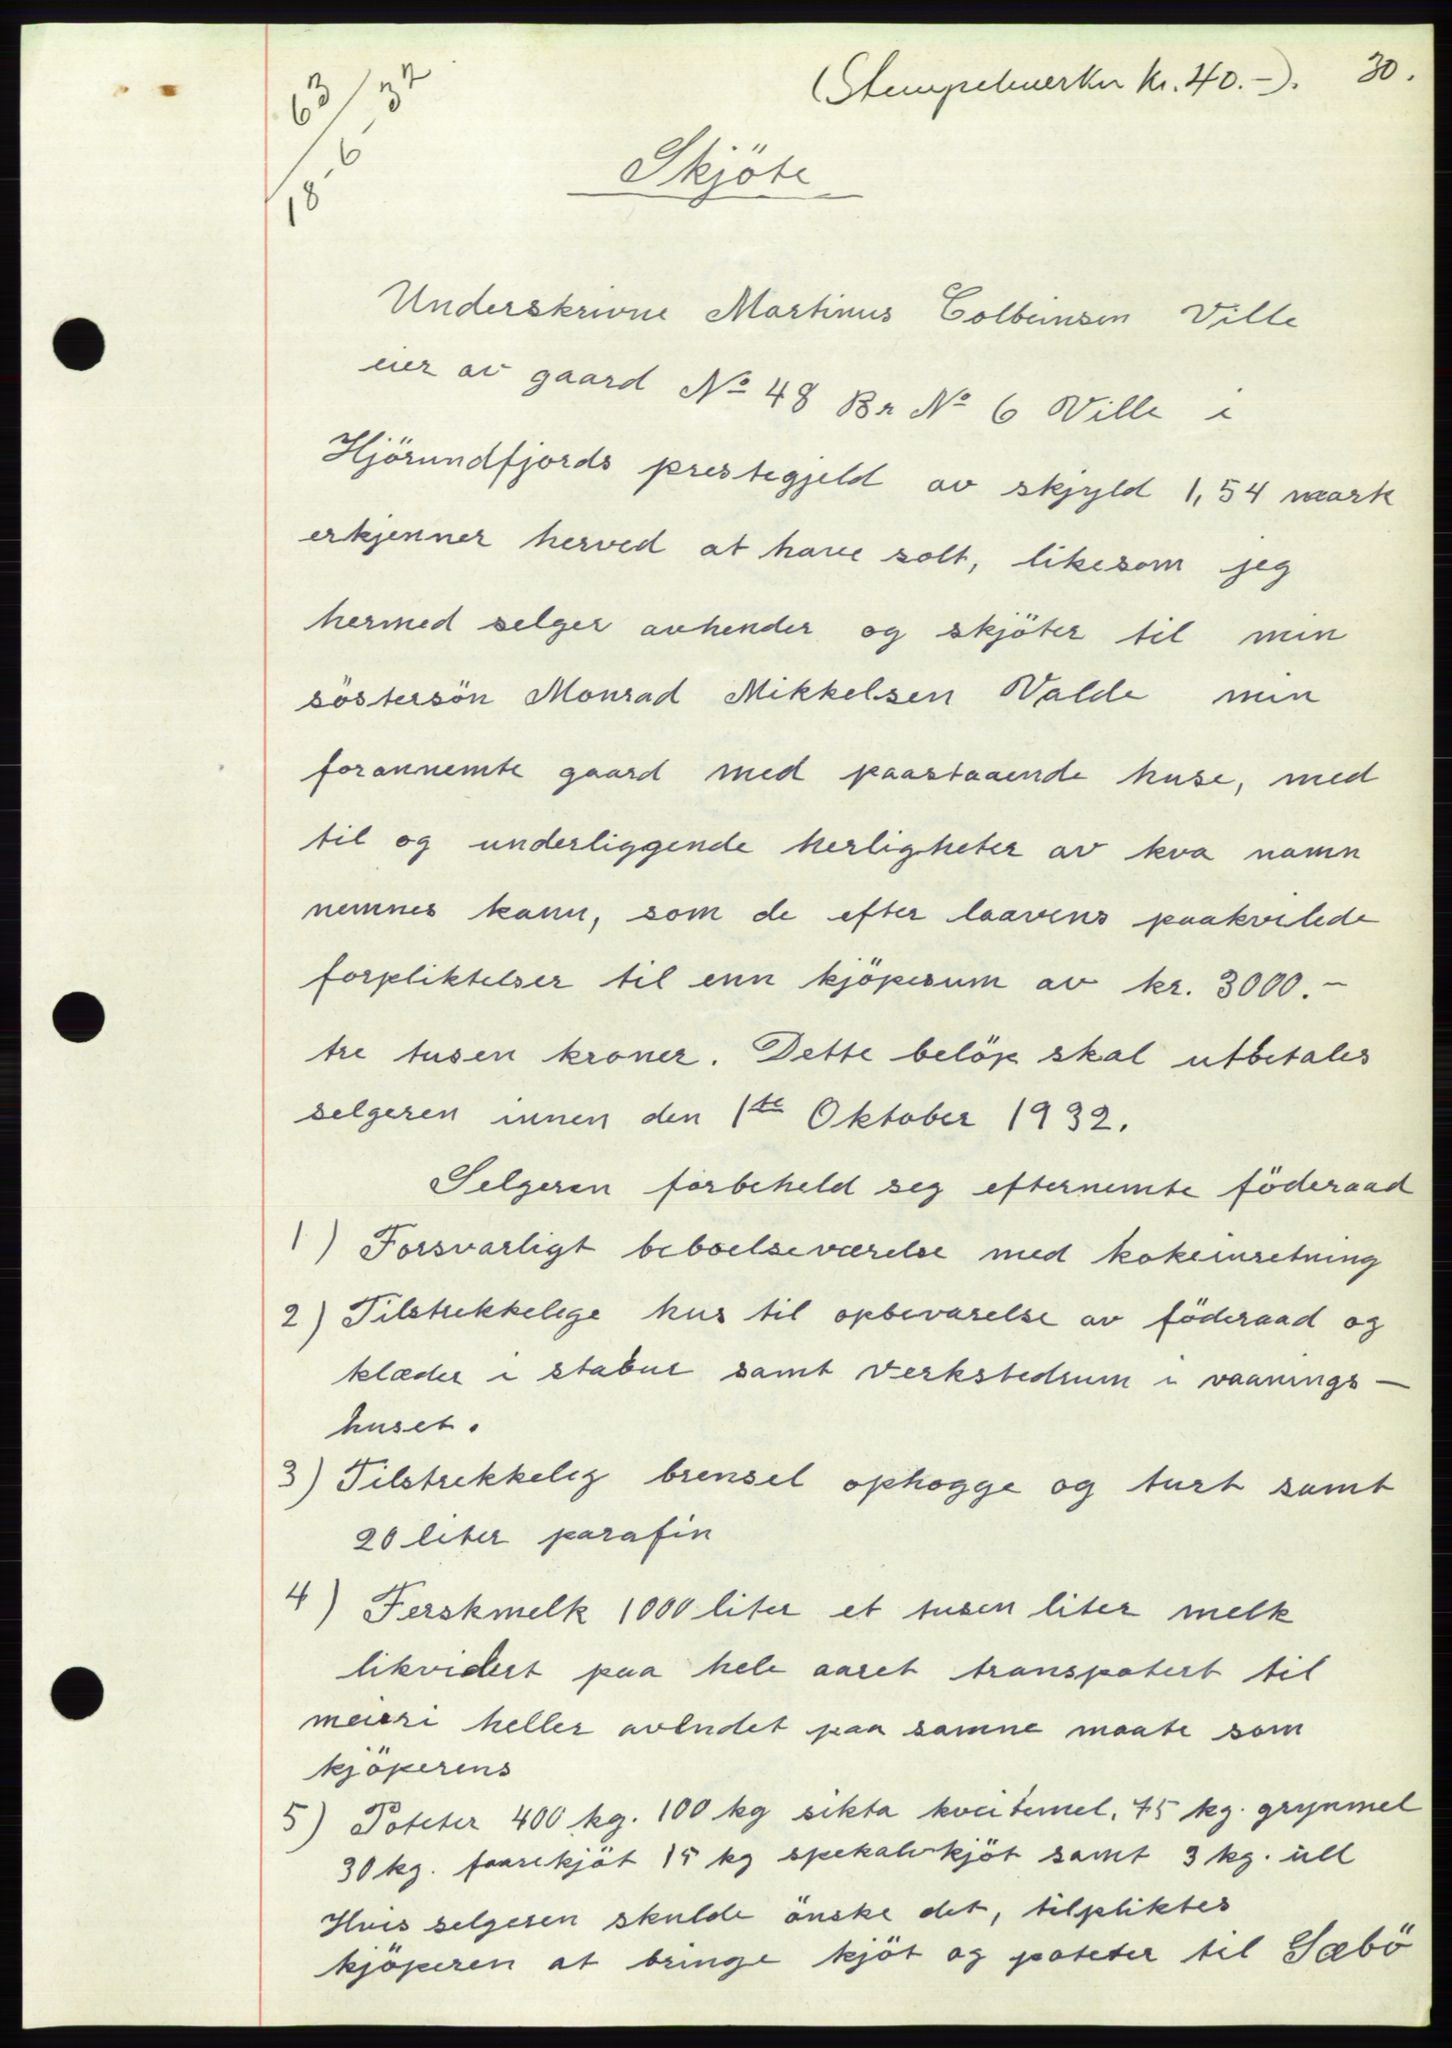 (Stempelmerker kr. 40.-). 30.
63/18-6-32
Skjöte
Underskrivne Martinus Colbeinsen Ville
eier av gaard No 48 Br No 6 Ville i
Hjörundfjords prestegjeld av skjyld 1,54 mark
erkjenner herved at have solt, likesom jeg
hermed selger avhender og skjöter til min
söstersön Monrad Mikkelsen Valde min
forannemte gaard med paastaaende huse, med
til og underliggende herligheter av kva namn
nemnes kann, som de efter laavens paakvilede
forpliktelser til enn kjöpesum av kr. 3000.-
tre tusen kroner. Dette belöp skal utbetales
selgeren innen den 1ste Oktober 1932.
Selgeren forbeheld seg efternemte föderaad
1) Forsvarligt beboelseværelse med kokeinretning
2) Tilstrekkelege hus til opbevarelse av föderaad og
klæder i stabur samt verkstedrum i vaanings-
huset.
3) Tilstrekkeleg brensel ophogge og turt samt
20 liter parafin
4) Ferskmelk 1000 liter et tusen liter melk
likvidert paa hele aaret transpotert til
meieri heller avendet paa samme maate som
kjöperens
5) Poteter 400 kg. 100 kg sikta kveitemel, 75 kg. grynmel
30 kg. faarekjöt 15 kg spekalvkjöt samt 3 kg. ull
Hvis selgeren skulde önske det, tilpliktes
kjöperen at bringe kjöt og poteter til Sæbö